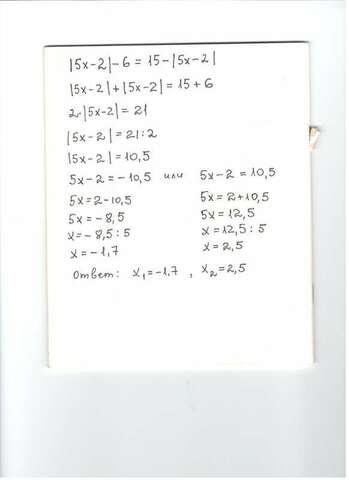 |5x-2|-6 = 15-|5x-2|
|5x-2|+|5x-2| = 15+6
2·|5x-2| = 21
|5x-2| = 21:2
|5x-2| = 10,5
5x-2 = -10,5 или 5x-2 = 10,5
5x = 2-10,5 5x = 2+10,5
5x = -8,5 5x = 12,5
x = -8,5 : 5 x = 12,5 : 5
x = -1,7 x = 2,5
ответ: x₁ = -1,7 , x₂ = 2,5